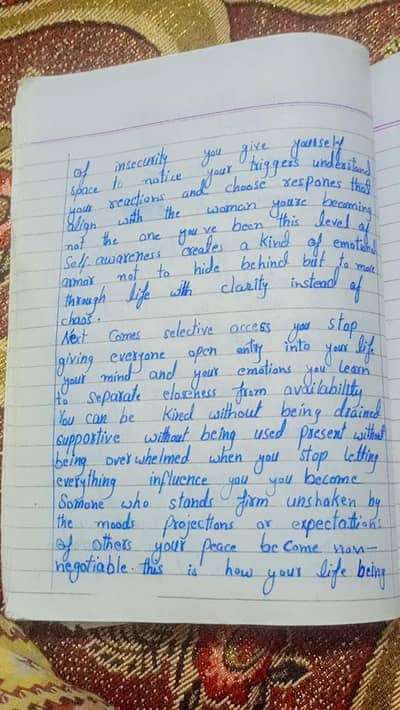 of insecurity you give yourself
space to notice your triggers understand
your reactions and choose respones that
align with the woman youre becoming
not the one you've been this level of
self-awareness creates a kind of emotional
armor not to hide behind but to move
through life with clarity instead of
chaos.
Next comes selective access you stop
giving everyone open entry into your life
your mind and your emotions you learn
to separate closeness from availability
You can be kind without being drained
supportive without being used present without
being overwhelmed when you stop letting
everything influence you you become
Somone who stands firm unshaken by
the moods projections or expectations
of others your peace become non-
negotiable. this is how your life being